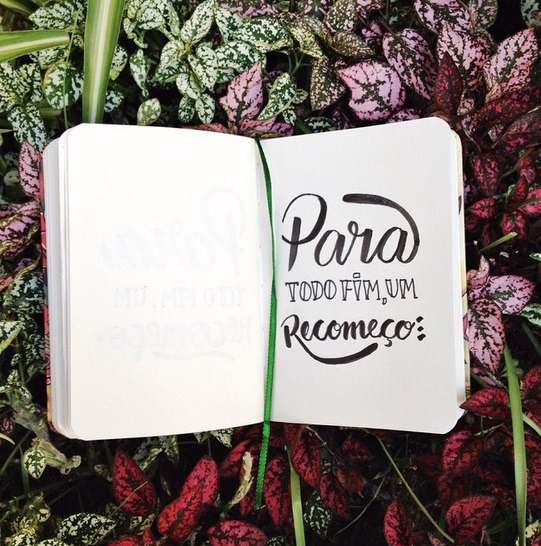 Para
TODO FIM, UM
Recomeço: